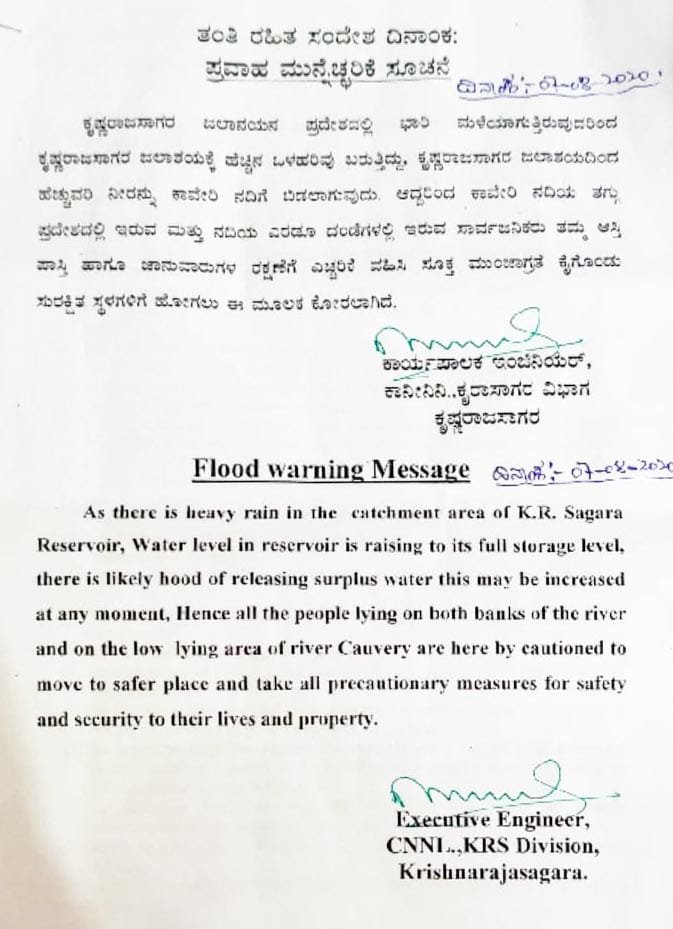 ತಂತಿ ರಹಿತ ಸಂದೇಶ ದಿನಾಂಕ:
ಪ್ರವಾಹ ಮುನ್ನೆಚ್ಚರಿಕೆ ಸೂಚನೆ ದಿನಾಂಕ:- 07-08-2020.
ಕೃಷ್ಣರಾಜಸಾಗರ ಜಲಾನಯನ ಪ್ರದೇಶದಲ್ಲಿ ಭಾರಿ ಮಳೆಯಾಗುತ್ತಿರುವುದರಿಂದ
ಕೃಷ್ಣರಾಜಸಾಗರ ಜಲಾಶಯಕ್ಕೆ ಹೆಚ್ಚಿನ ಒಳಹರಿವು ಬರುತ್ತಿದ್ದು, ಕೃಷ್ಣರಾಜಸಾಗರ ಜಲಾಶಯದಿಂದ
ಹೆಚ್ಚುವರಿ ನೀರನ್ನು ಕಾವೇರಿ ನದಿಗೆ ಬಿಡಲಾಗುವುದು. ಆದ್ದರಿಂದ ಕಾವೇರಿ ನದಿಯ ತಗ್ಗು
ಪ್ರದೇಶದಲ್ಲಿ ಇರುವ ಮತ್ತು ನದಿಯ ಎರಡೂ ದಂಡೆಗಳಲ್ಲಿ ಇರುವ ಸಾರ್ವಜನಿಕರು ತಮ್ಮ ಆಸ್ತಿ
ಪಾಸ್ತಿ ಹಾಗೂ ಜಾನುವಾರುಗಳ ರಕ್ಷಣೆಗೆ ಎಚ್ಚರಿಕೆ ವಹಿಸಿ ಸೂಕ್ತ ಮುಂಜಾಗ್ರತೆ ಕೈಗೊಂಡು
ಸುರಕ್ಷಿತ ಸ್ಥಳಗಳಿಗೆ ಹೋಗಲು ಈ ಮೂಲಕ ಕೋರಲಾಗಿದೆ.
ಕಾರ್ಯಪಾಲಕ ಇಂಜಿನಿಯರ್,
ಕಾನೀನಿನಿ.,ಕೃರಾಸಾಗರ ವಿಭಾಗ
ಕೃಷ್ಣರಾಜಸಾಗರ
Flood warning Message ದಿನಾಂಕ:- 07-08-2020
As there is heavy rain in the catchment area of K.R. Sagara
Reservoir, Water level in reservoir is raising to its full storage level,
there is likely hood of releasing surplus water this may be increased
at any moment, Hence all the people lying on both banks of the river
and on the low lying area of river Cauvery are here by cautioned to
move to safer place and take all precautionary measures for safety
and security to their lives and property.
Executive Engineer,
CNNL.,KRS Division,
Krishnarajasagara.